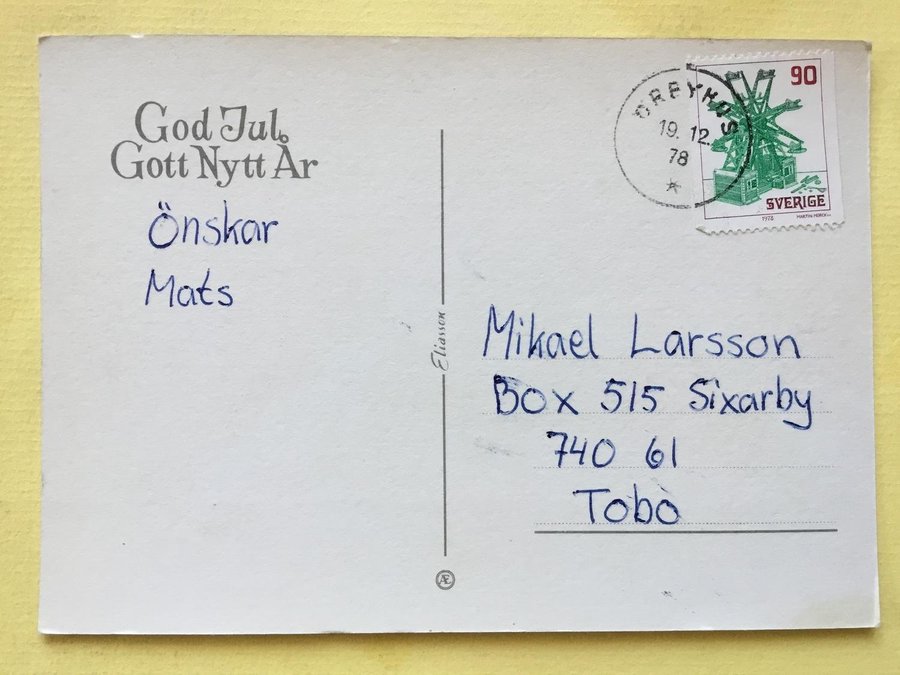 God Jul,
Gott Nytt År
Önskar
Mats
Eliasson
Æ
ÖRBYHUS
19. 12.
78
90
SVERIGE
1978
Mikael Larsson
Box 515 Sixarby
740 61
Tobo